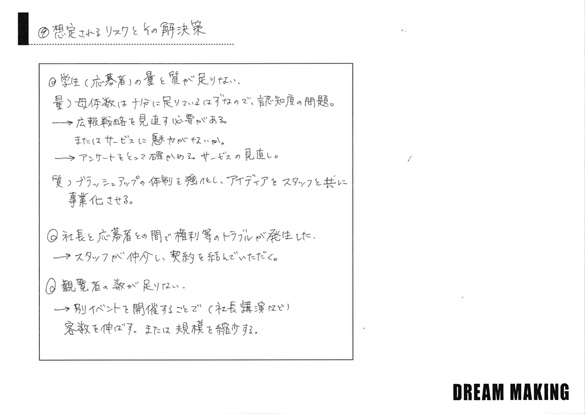 ④想定されるリスクとその解決策
◎学生(応募者)の量と質が足りない.
量)母体数は十分に足りているはずなので、認知度の問題。
→広報戦略を見直す必要がある。
またはサービスに魅力がないか。
→アンケートをとって確かめる。サービスの見直し。
質)ブラッシュアップの体制を強化し、アイディアをスタッフと共に
事業化させる。
◎社長と応募者との間で権利等のトラブルが発生した.
→スタッフが仲介し、契約を結んでいただく。
◎観覧者の数が足りない.
→別イベントを開催することで(社長講演など)
客数を伸ばす。または規模を縮少する。
DREAM MAKING